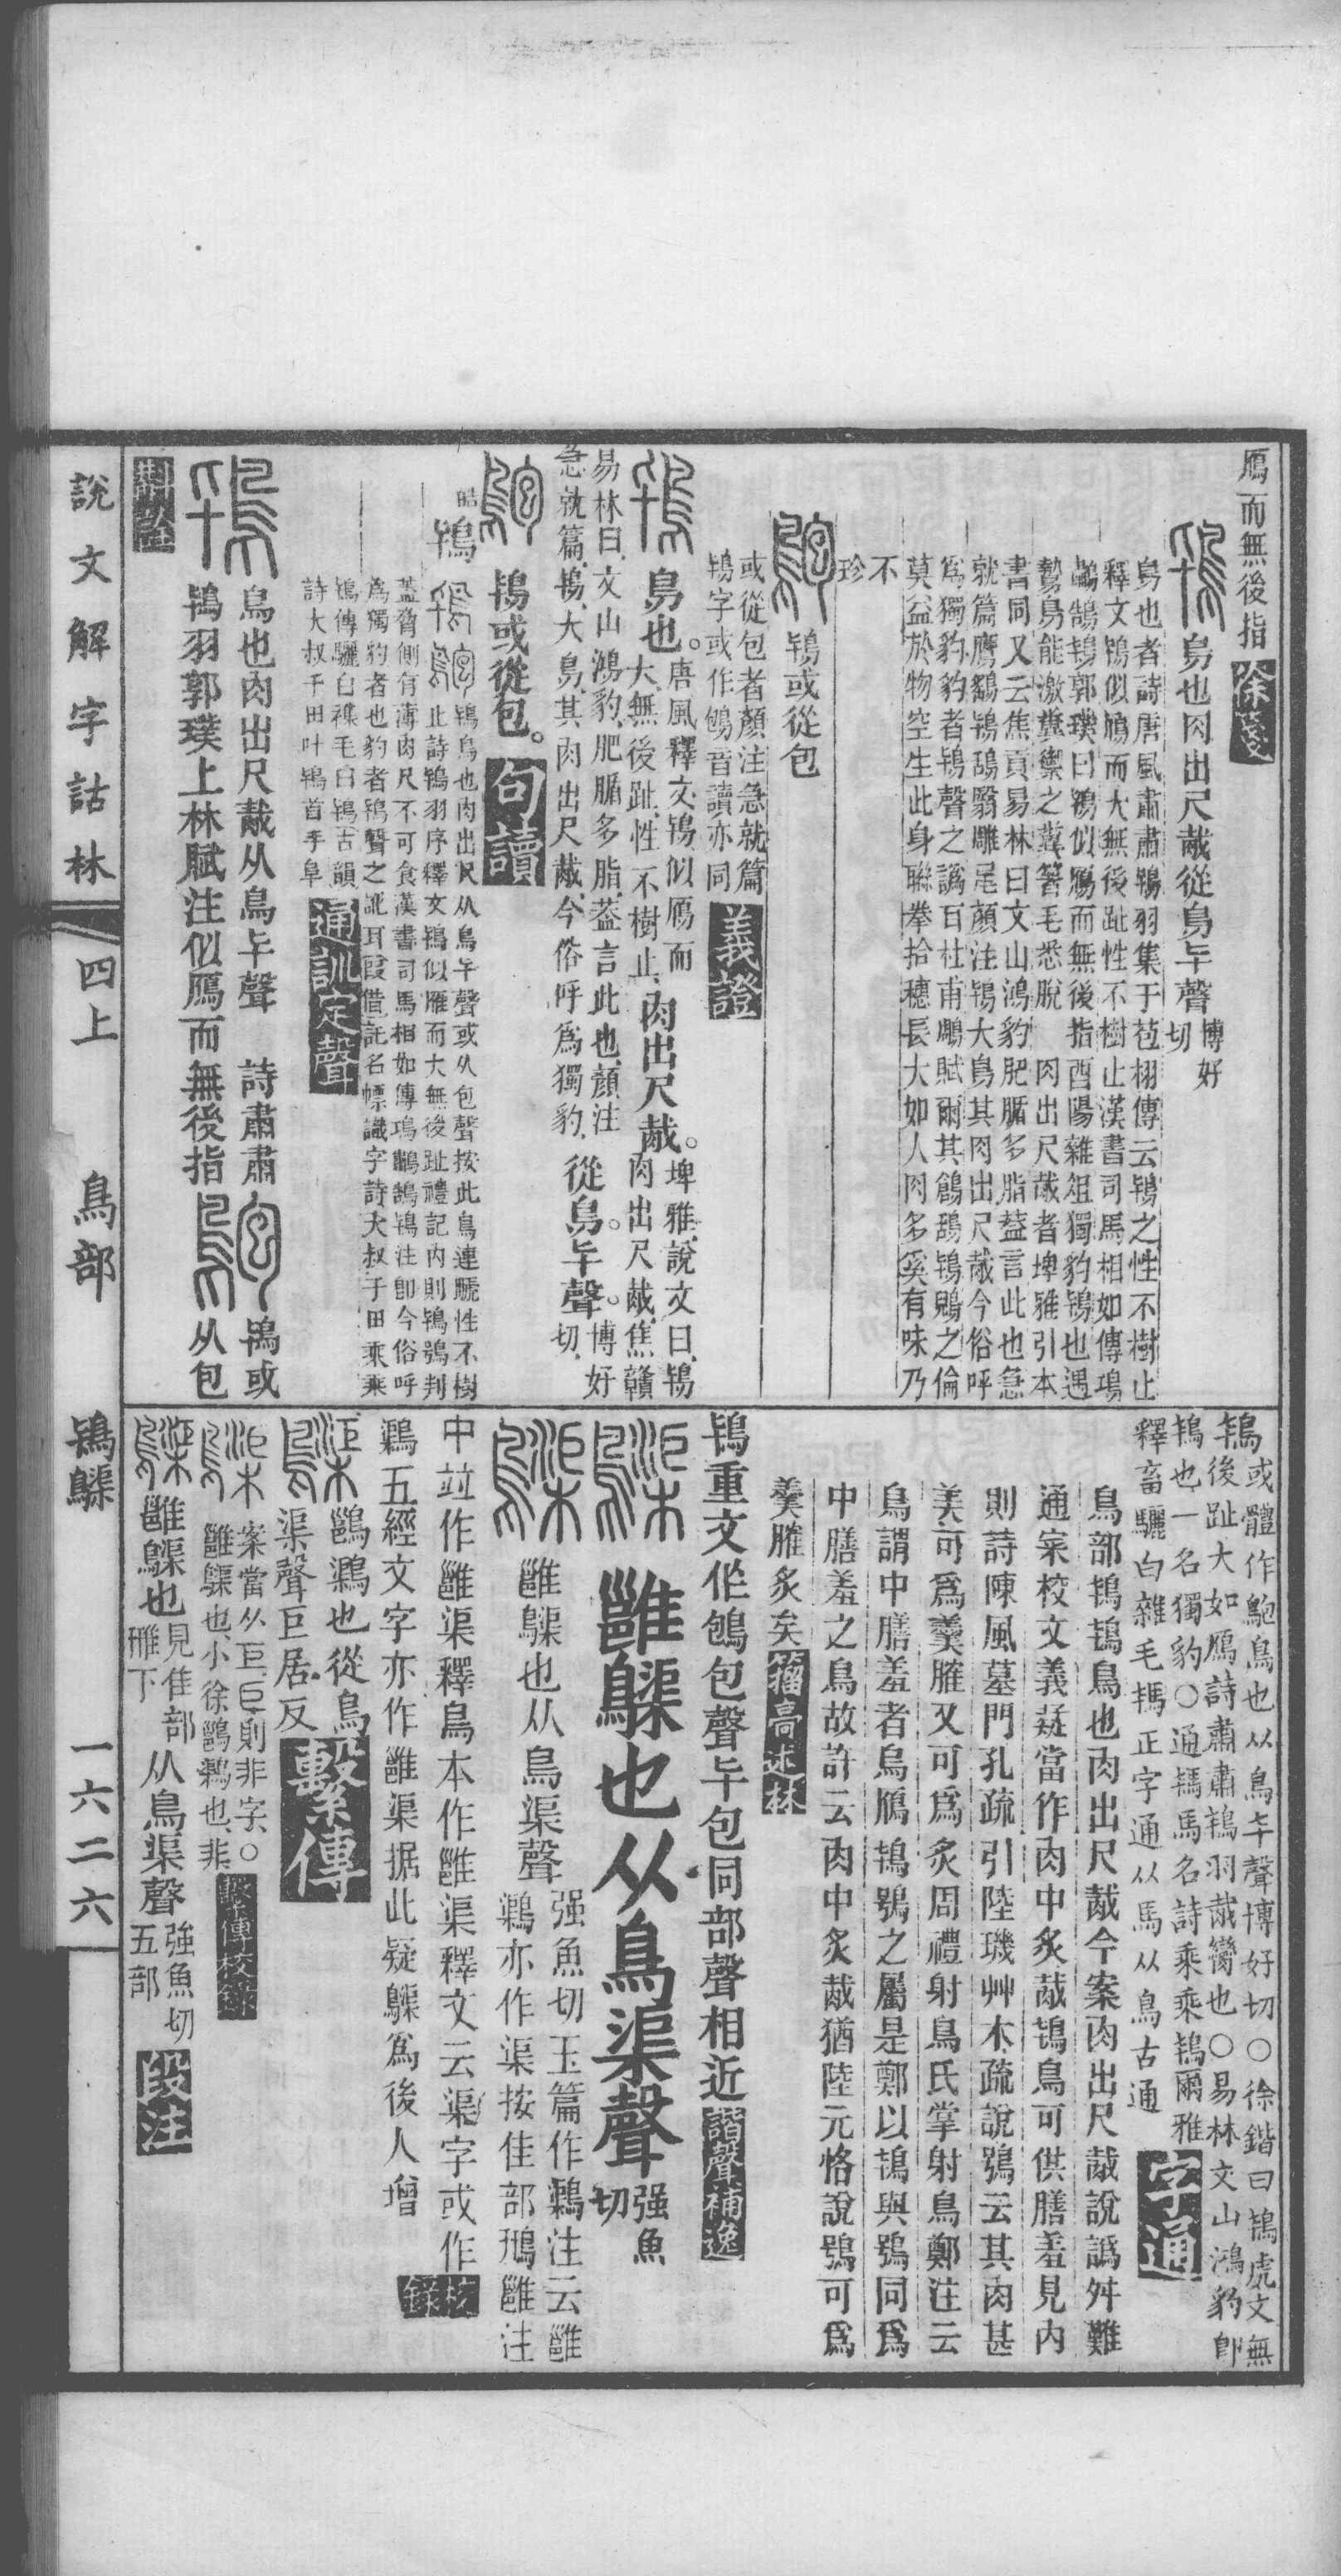 鴈而無後指 徐箋
鳥也肉出尺胾從鳥𠦒聲 博好切
鳥也者詩唐風肅肅鴇羽集于苞栩傳云鴇之性不樹止
釋文鴇似鴈而大無後趾性不樹止漢書司馬相如傳鴻
鷫鵠鴇郭璞曰鴇似鴈而無後指酉陽雜俎獨豹鴇也遇
鷙鳥能激糞禦之糞箸毛悉脫 肉出尺胾者埤雅引本
書同又云焦貢易林曰文山鴻豹肥腯多脂蓋言此也急
就篇鷹鷂鴇鴰翳雕尾顏注鴇大鳥其肉出尺胾今俗呼
爲獨豹豹者鴇聲之譌百杜甫鵰賦爾其鶬鴰鴇鶂之倫
莫益於物空生此身聯拳拾穗長大如人肉多奚有味乃
不珍
鴇或從包
或從包者顏注急就篇
鴇字或作鴇音讀亦同 義證
鳥也。唐風釋文鴇似鴈而大無後趾性不樹止 肉出尺胾。埤雅說文曰鴇肉出尺胾焦贛
易林曰文山鴻豹肥腯多脂蓋言此也顏注
急就篇鴇大鳥其肉出尺胾今俗呼爲獨豹 從鳥。𠦒聲。博好切
鴇或從包。 句讀
鴇 鴇鳥也肉出尺胾从鳥𠦒聲或从包聲按此鳥連蹏性不樹
止詩鴇羽序釋文鴇似雁而大無後趾禮記內則鴇鴞判
蓋脅側有薄肉尺不可食漢書司馬相如傳鴻鷫鵠鴇注卽今俗呼
爲獨豹者也豹者鴇聲之訛耳叚借託名幖識字詩大叔于田乘乘
鴇傳驪白襍毛曰鴇古韻
詩大叔于田叶鴇首手阜 通訓定聲
鳥也肉出尺胾从鳥𠦒聲 詩肅肅
鴇羽郭璞上林賦注似鴈而無後指 鴇或从包
鴇或體作鮑鳥也从鳥𠦒聲博好切○徐鍇曰鴇虎文無
後趾大如鴈詩肅肅鴇羽胾臠也○易林文山鴻豹卽
鴇也一名獨豹○通䮀馬名詩乘乘鴇爾雅
釋畜驪白雜毛䮀正字通从馬从鳥古通 字通
鳥部鴇鴇鳥也肉出尺胾今案肉出尺胾說譌舛難
通寀校文義疑當作肉中炙胾鴇鳥可供膳羞見內
則詩陳風墓門孔疏引陸璣艸木疏說鴞云其肉甚
美可爲羹臛又可爲炙周禮射鳥氏掌射鳥鄭注云
鳥謂中膳羞者鳧鴈鴇鴞之屬是鄭以鴇與鴞同爲
中膳羞之鳥故許云肉中炙胾猶陸元恪說鴞可爲
羹臛炙矣 籀𢈪述林
鴇重文作鴇包聲𠦒包同部聲相近 諧聲補逸
雝鶋也从鳥渠聲 强魚切
雝鶋也从鳥渠聲 强魚切玉篇作鸜注云雝
鸜亦作渠按隹部䳋雝注
中竝作雝渠釋鳥本作雝渠釋文云渠字或作
鸜五經文字亦作雝渠据此疑鶋爲後人增 校錄
鶋鸜也從鳥
渠聲巨居反 繫傳
案當从巨巨則非字○
雝鶋也小徐鶋鸜也非 繫傳校錄
雝鶋也 見隹部䳋下 从鳥渠聲 強魚切五部 段注
說文解字詁林 四上 鳥部 鴇鶋 一六二六